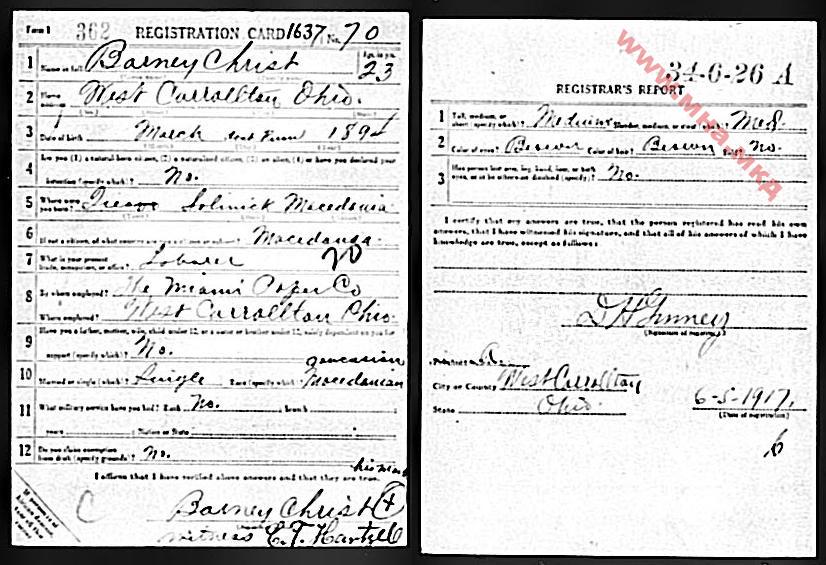 Form 1 362 REGISTRATION CARD 1637 No. 70
1 Name in full Barney Christ Age, in yrs. 23
2 Home address West Carrollton Ohio.
3 Date of birth March 189
4 Are you (1) a natural-born citizen, (2) a naturalized citizen, (3) an alien, (4) or have you declared your
intention (specify which)? No.
5 Where were you born? Macedonia
6 If not a citizen, of what country are you a citizen or subject? Macedonia
7 What is your present trade, occupation, or office? Laborer 20
8 By whom employed? The Miami Paper Co
Where employed? West Carrollton Ohio.
9 Have you a father, mother, wife, child under 12, or a sister or brother under 12, solely dependent on you for
support (specify which)? No.
caucasian
10 Married or single (which)? Single Race (specify which)? Macedonian
11 What military service have you had? Rank No. ; branch
years ; Nation or State
12 Do you claim exemption from draft (specify grounds)? No.
I affirm that I have verified above answers and that they are true.
his mark
Barney Christ
witness E.T. Hartzell
34-6-26 A
REGISTRAR'S REPORT
www.мна.мкд
1 Tall, medium, or short (specify which)? Medium Slender, medium, or stout (which)? Med.
2 Color of eyes? Brown Color of hair? Brown Bald? No.
3 Has person lost arm, leg, hand, foot, or both eyes, or is he otherwise disabled (specify)? No.
I certify that my answers are true, that the person registered has read his own
answers, that I have witnessed his signature, and that all of his answers of which I have
knowledge are true, except as follows:
(Signature of registrar)
Precinct
City or County West Carrollton
State Ohio 6-5-1917.
(Date of registration)
6